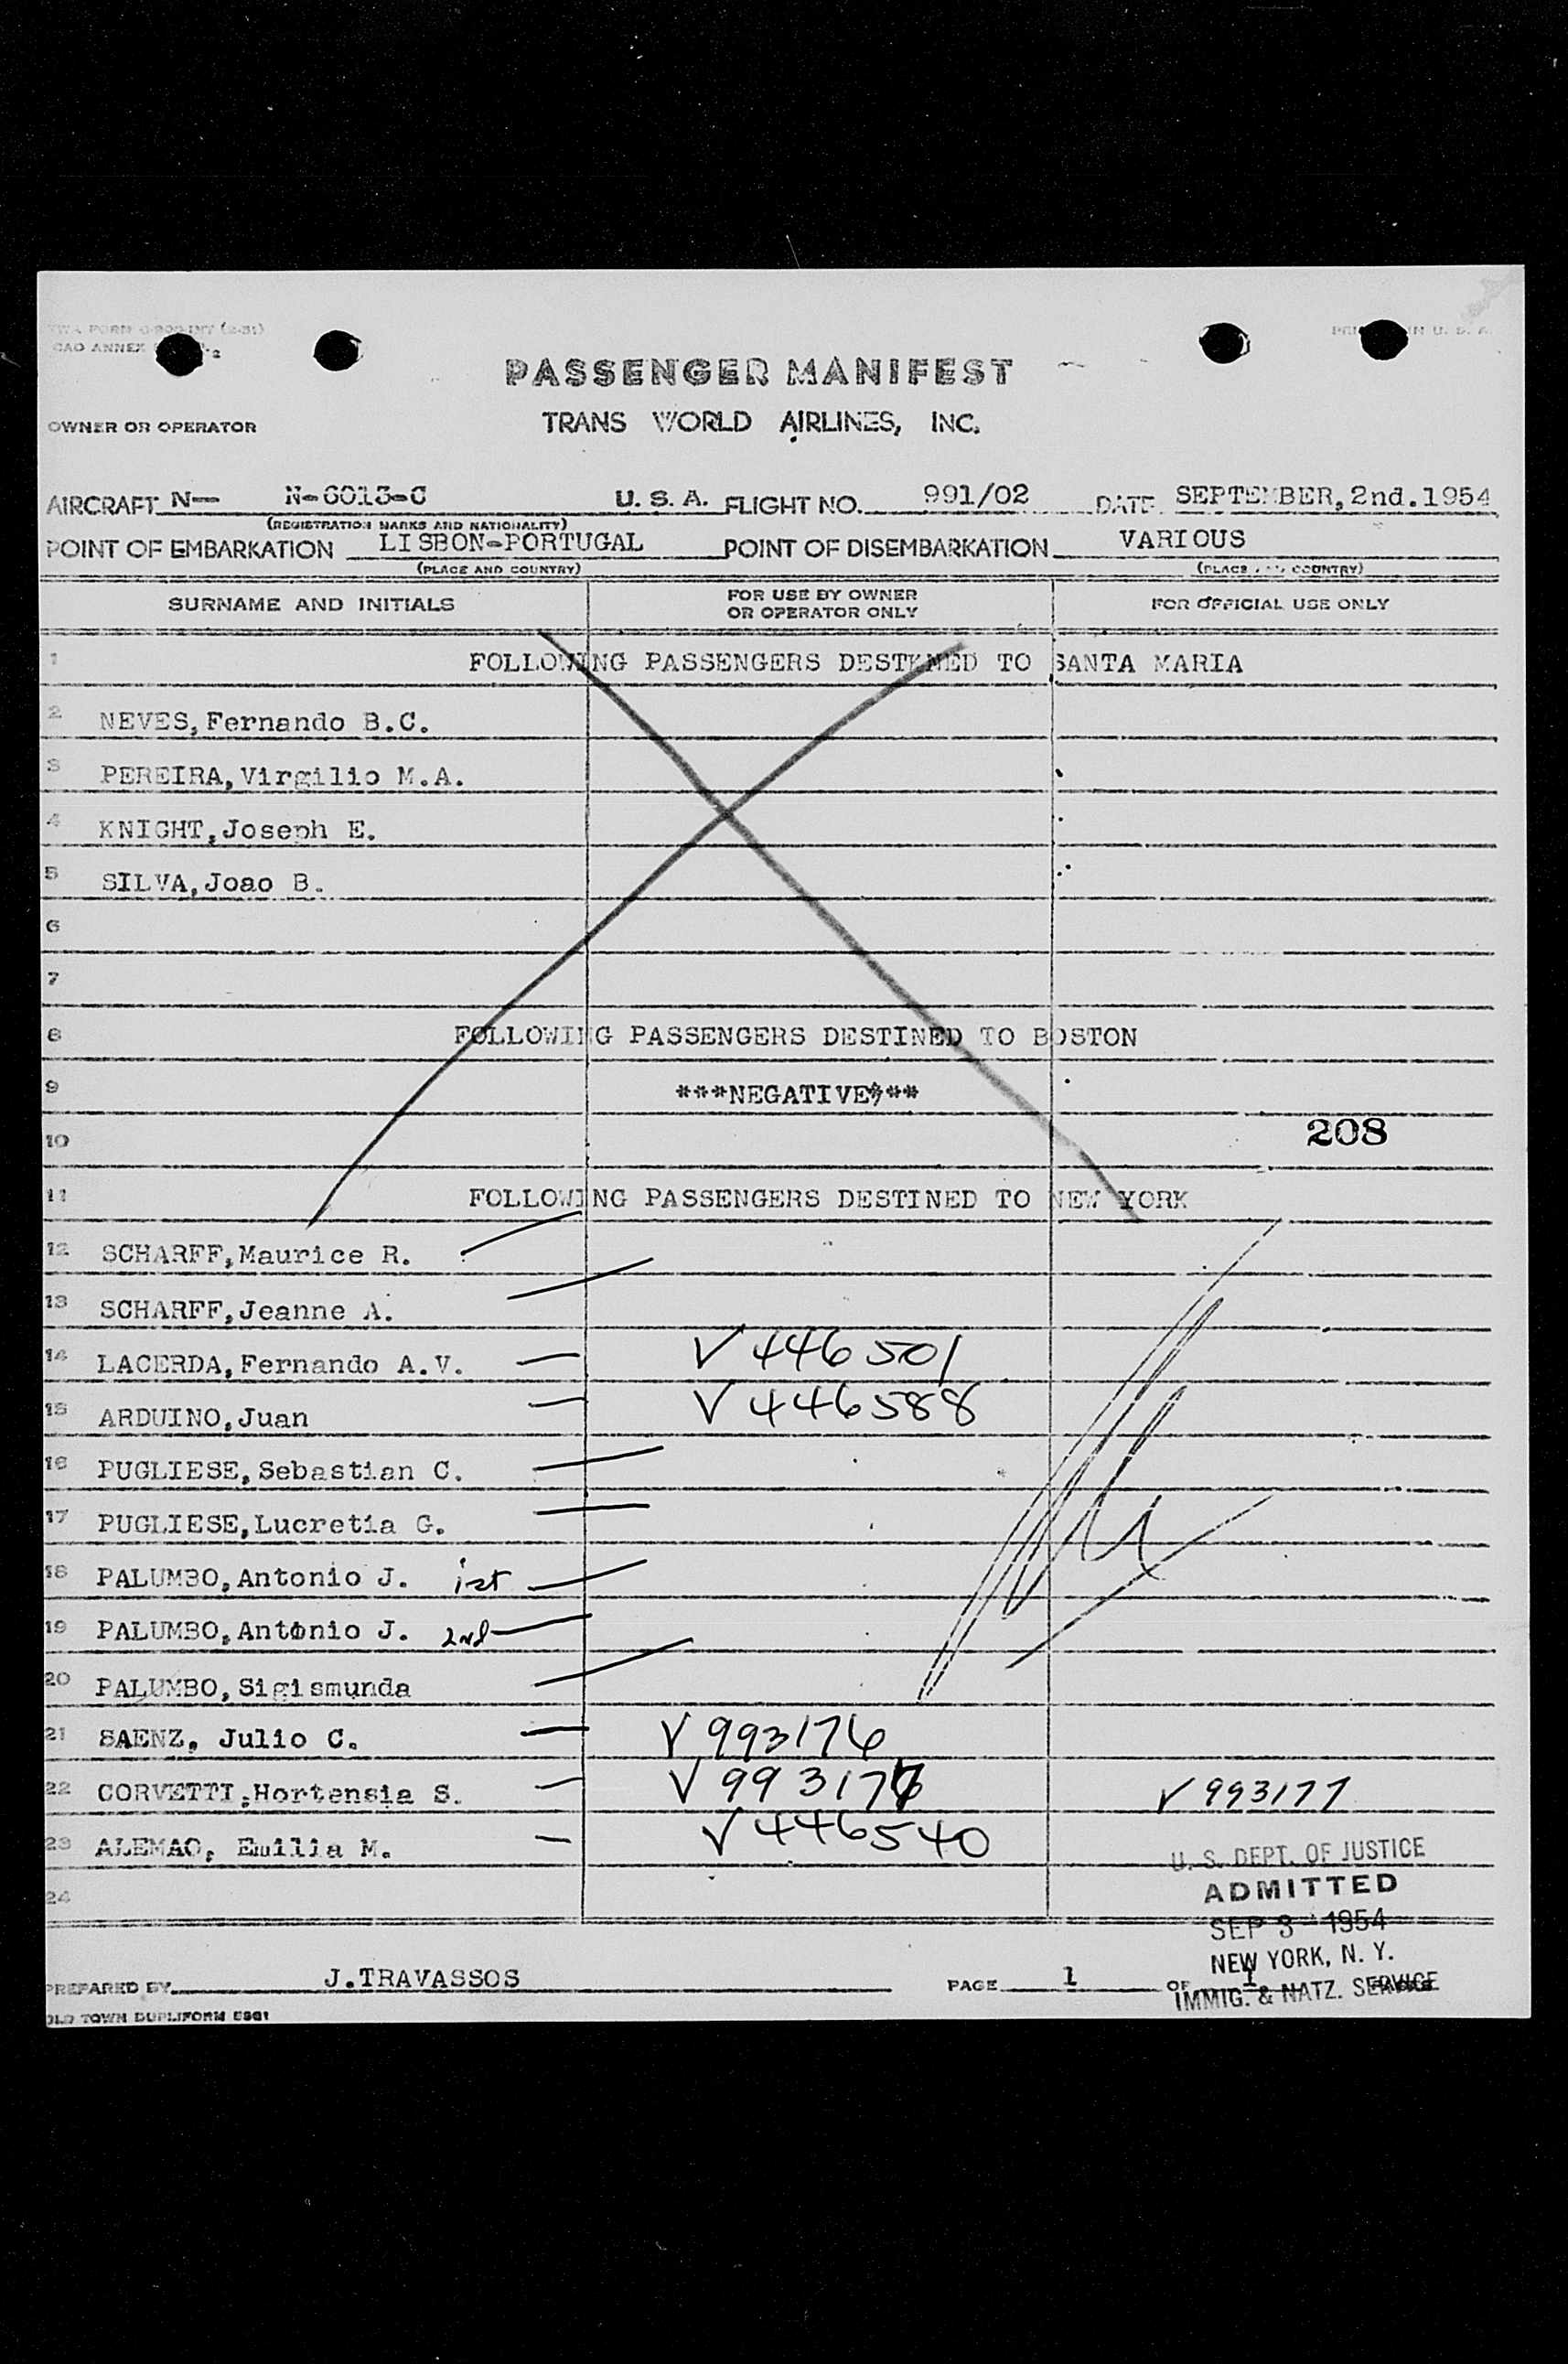 TWA FORM
CAO ANNEX
U. S. A.
PASSENGER MANIFEST
OWNER OR OPERATOR TRANS WORLD AIRLINES, INC.
AIRCRAFT N— N-6013-C U. S. A. FLIGHT NO. 991/02 DATE SEPTEMBER,2nd.1954
(REGISTRATION MARKS AND NATIONALITY)
POINT OF EMBARKATION LISBON-PORTUGAL POINT OF DISEMBARKATION VARIOUS
(PLACE AND COUNTRY) (PLACE AND COUNTRY)
SURNAME AND INITIALS FOR USE BY OWNER OR OPERATOR ONLY FOR OFFICIAL USE ONLY
1 FOLLOWING PASSENGERS DESTINED TO SANTA MARIA
2 NEVES,Fernando B.C.
3 PEREIRA,Virgilio M.A.
4 KNIGHT,Joseph E.
5 SILVA,Joao B.
6
7
8 FOLLOWING PASSENGERS DESTINED TO BOSTON
9 ***NEGATIVE***
10 208
11 FOLLOWING PASSENGERS DESTINED TO NEW YORK
12 SCHARFF,Maurice R.
13 SCHARFF,Jeanne A.
14 LACERDA,Fernando A.V. √ 446501
15 ARDUINO,Juan √ 446588
16 PUGLIESE,Sebastian C.
17 PUGLIESE,Lucretia G.
18 PALUMBO,Antonio J. 1st
19 PALUMBO,Antonio J. 2nd
20 PALUMBO,Sigismunda
21 SAENZ, Julio C. √ 993176
22 CORVETTI,Hortensia S. √ 993177 √ 993177
23 ALEMAO, Emilia M. √ 446540
24
U. S. DEPT. OF JUSTICE
ADMITTED
SEP 3 - 1954
NEW YORK, N. Y.
IMMIG. & NATZ. SERVICE
PREPARED BY J.TRAVASSOS PAGE 1 OF 1
OLD TOWN DUPLIFORM